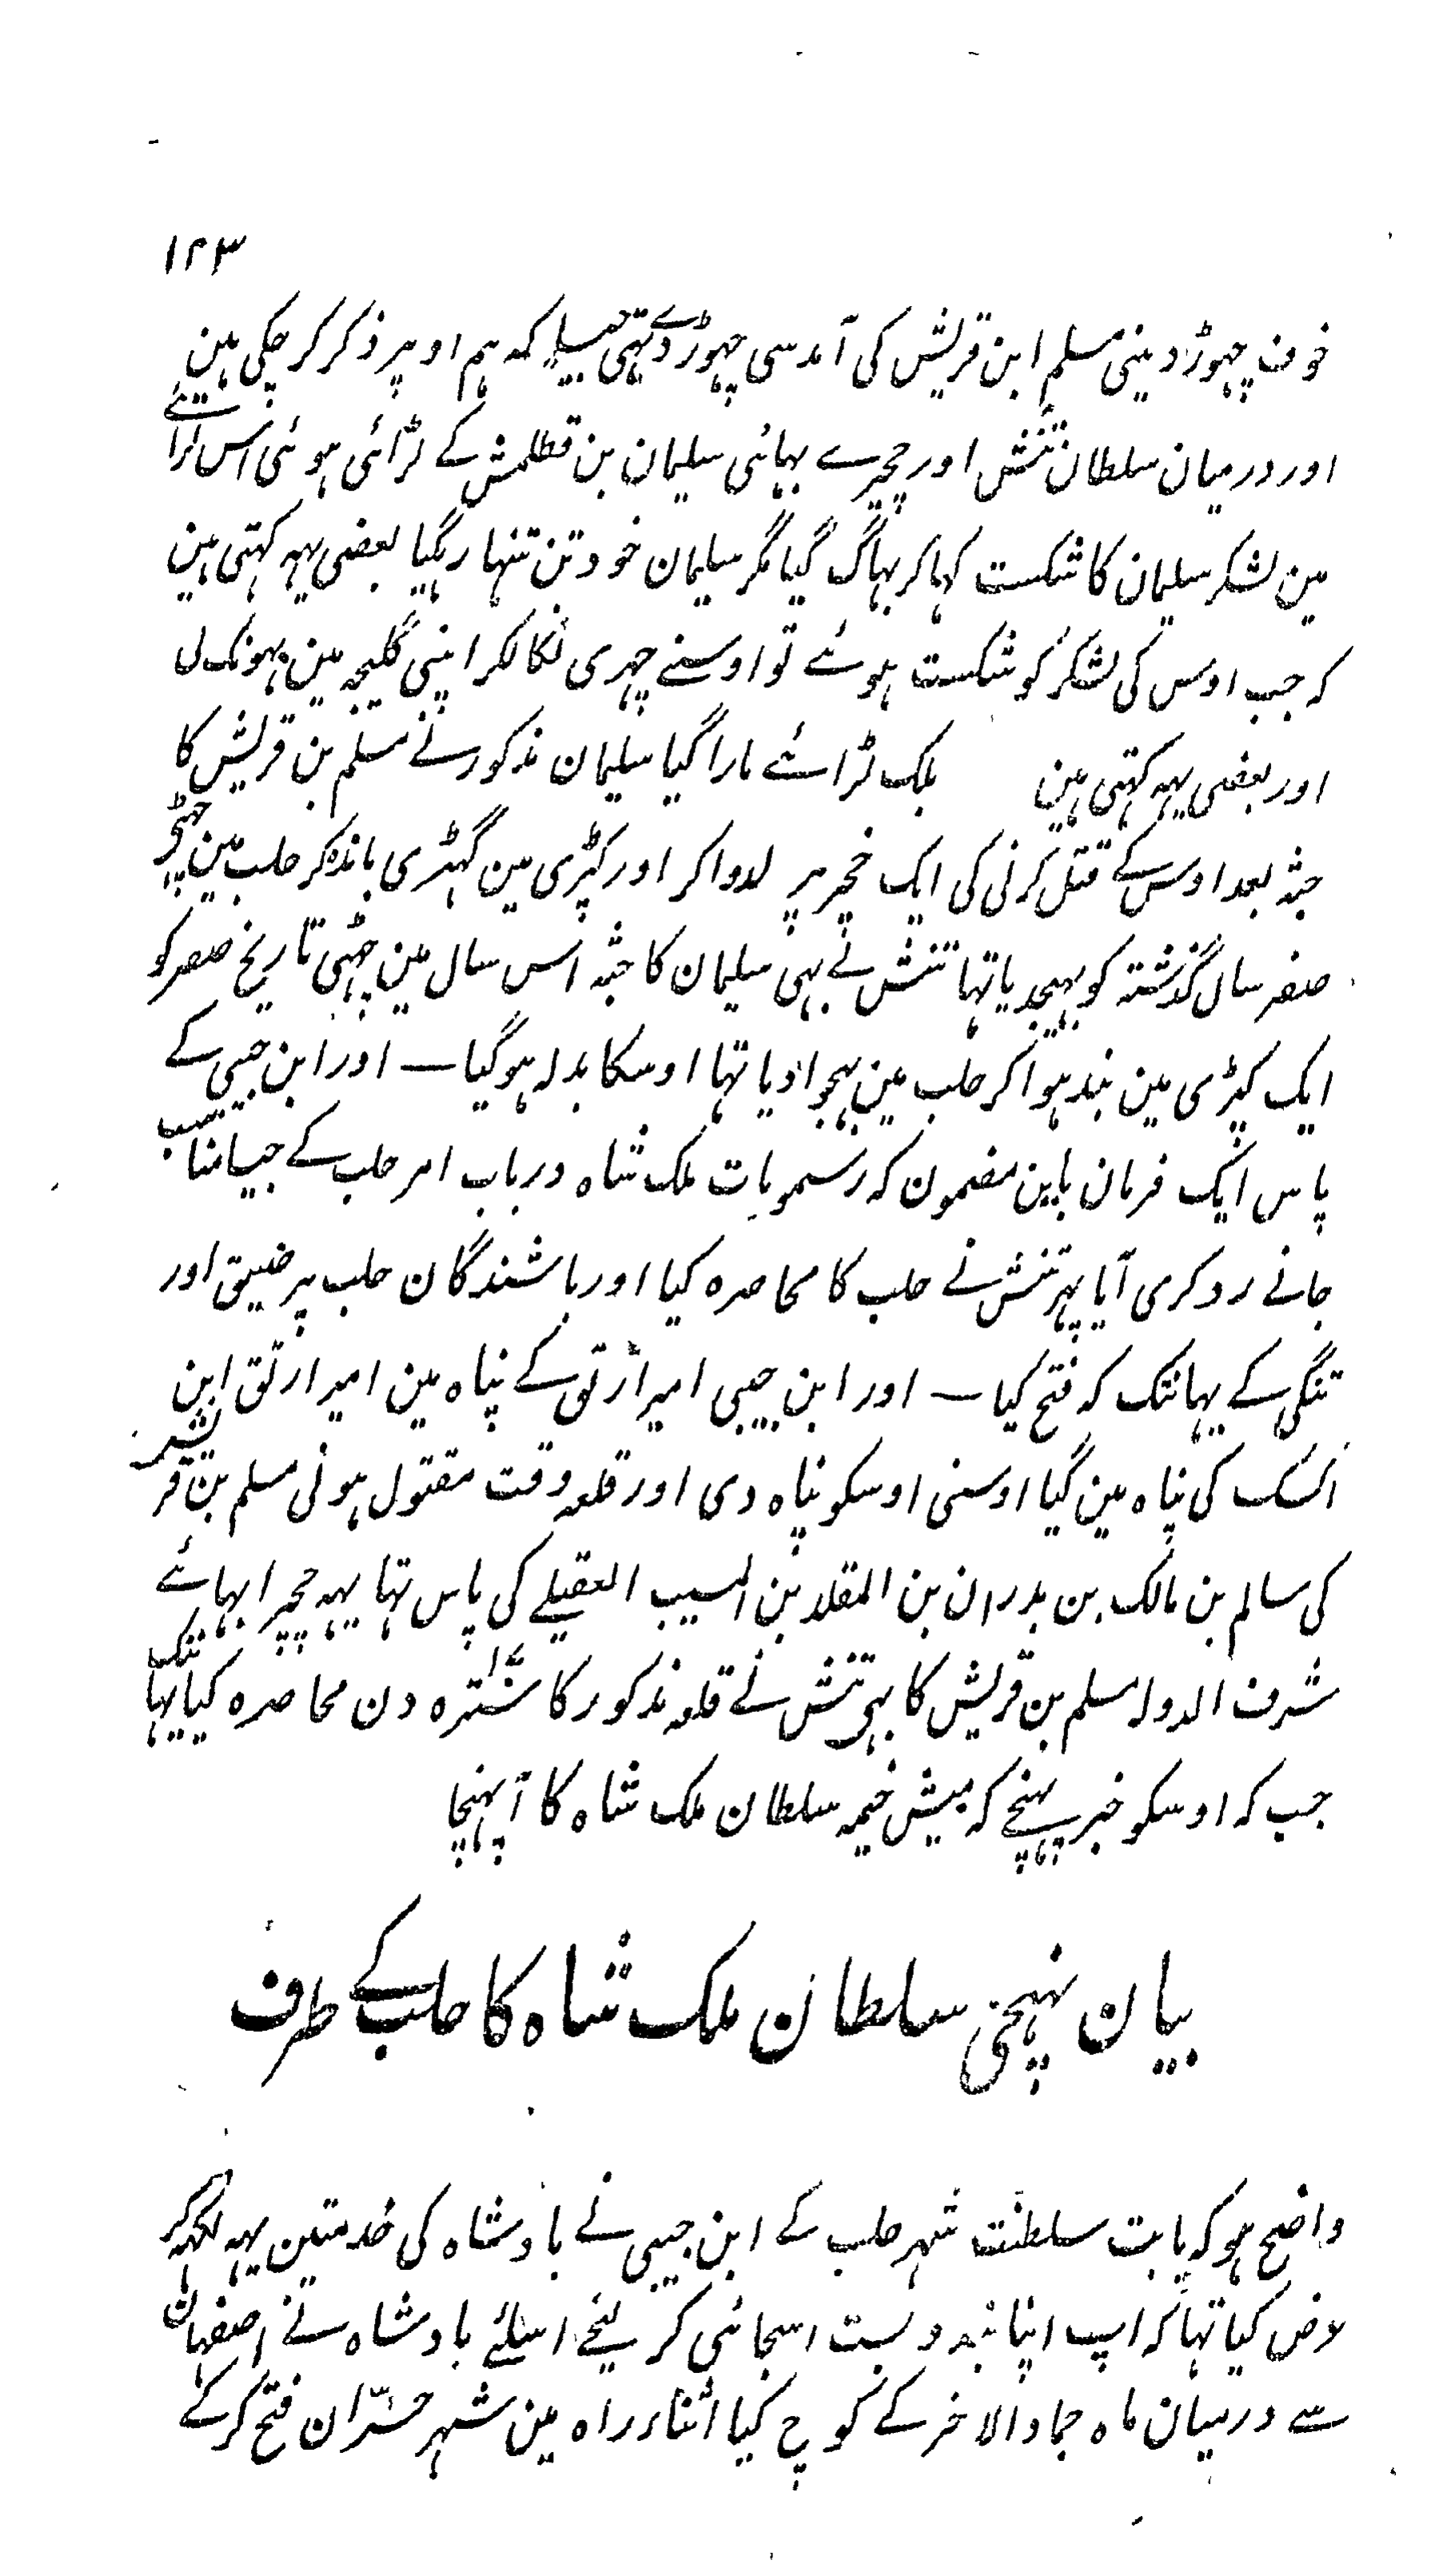 ١٢٣
خوف چہوڑ دینی مسلم ابن قریش کی آمد سی چہوڑ دئے تہی جیسا کہ ہم اوپر ذکر کر چکی ہین
اور درمیان سلطان تتش اور چچیرے بہائی سلیمان بن قطلمش کے لڑائی ہوئی اس لڑائے
مین لشکر سلیمان کا شکست کہا کر بہاگ گیا مگر سلیمان خود تن تنہا رہگیا بعضی یہہ کہتی ہین
کہ جب اوس کی لشکر کو شکست ہوئے تو اوسنے چہری نکالکر اپنی کلیجہ مین بہونک لی
اور بعضی یہہ کہتی ہین بلک لڑائے مارا گیا سلیمان مذکور نے مسلم بن قریش کا
جثہ بعد اوس کے قتل کرنی کی ایک خچر پر لدوا کر اور کپڑی مین گہٹری باندہ کر حلب مین چہٹی
صفر سال گذشتہ کو بہیجدیا تہا تتش نے بہی سلیمان کا جثہ اس سال مین چہٹی تاریخ صفر کو
ایک کپڑی مین بندہوا کر حلب مین بہجوا دیا تہا اوسکا بدلہ ہو گیا — اور ابن حبیبی کے
پاس ایک فرمان باین مضمون کہ رسموبات ملک شاہ در باب امر حلب کے جیسا مناسب
جانے رد کری آیا پہر تتش نے حلب کا محاصرہ کیا اور باشندگان حلب پر ضیق اور
تنگی کے یہانتک کہ فتح کیا — اور ابن حبیبی امیر ارتق کے پناہ مین امیر ارتق ابن
اکسک کی پناہ مین گیا اوسنی اوسکو پناہ دی اور قلعہ وقت مقتول ہونی مسلم بن قریش
کی سالم بن مالک بن بدران بن المقلد بن المسیب العقیلے کی پاس تہا یہہ چچیرا بہائے
شرف الدولہ مسلم بن قریش کا بہی تتش نے قلعہ مذکور کا سترہ دن محاصرہ کیا یہانتک
جب کہ اوسکو خبر پہنچے کہ پیش خیمہ سلطان ملک شاہ کا آپہنچا
بیان پہنچنی سلطان ملک شاہ کا حلب کے طرف
واضح ہو کہ بابت سلطنت شہر حلب کے ابن حبیبی نے بادشاہ کی خدمتین یہہ لکہہ کر
عرض کیا تہا کہ اپ اپنا بندوبست اسجائی کر لیجے اسلئے بادشاہ نے اصفہان
سے درمیان ماہ جماد الاخر کے کوچ کیا اثناء راہ مین شہر حرّان فتح کر کے